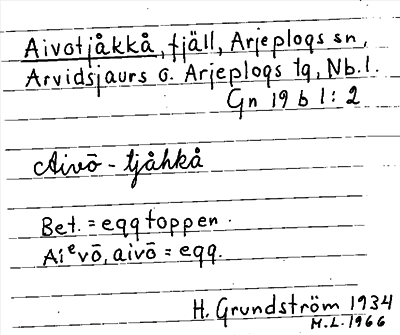 Aivotjåkkå, fjäll, Arjeplogs sn,
Arvidsjaurs o. Arjeplogs tg, Nb. l.
Gn 19 b l : 2
Aivō - tjåhkå
Bet. = egg toppen.
Aiᵉvō, aivō = egg.
H. Grundström 1934
M.L. 1966